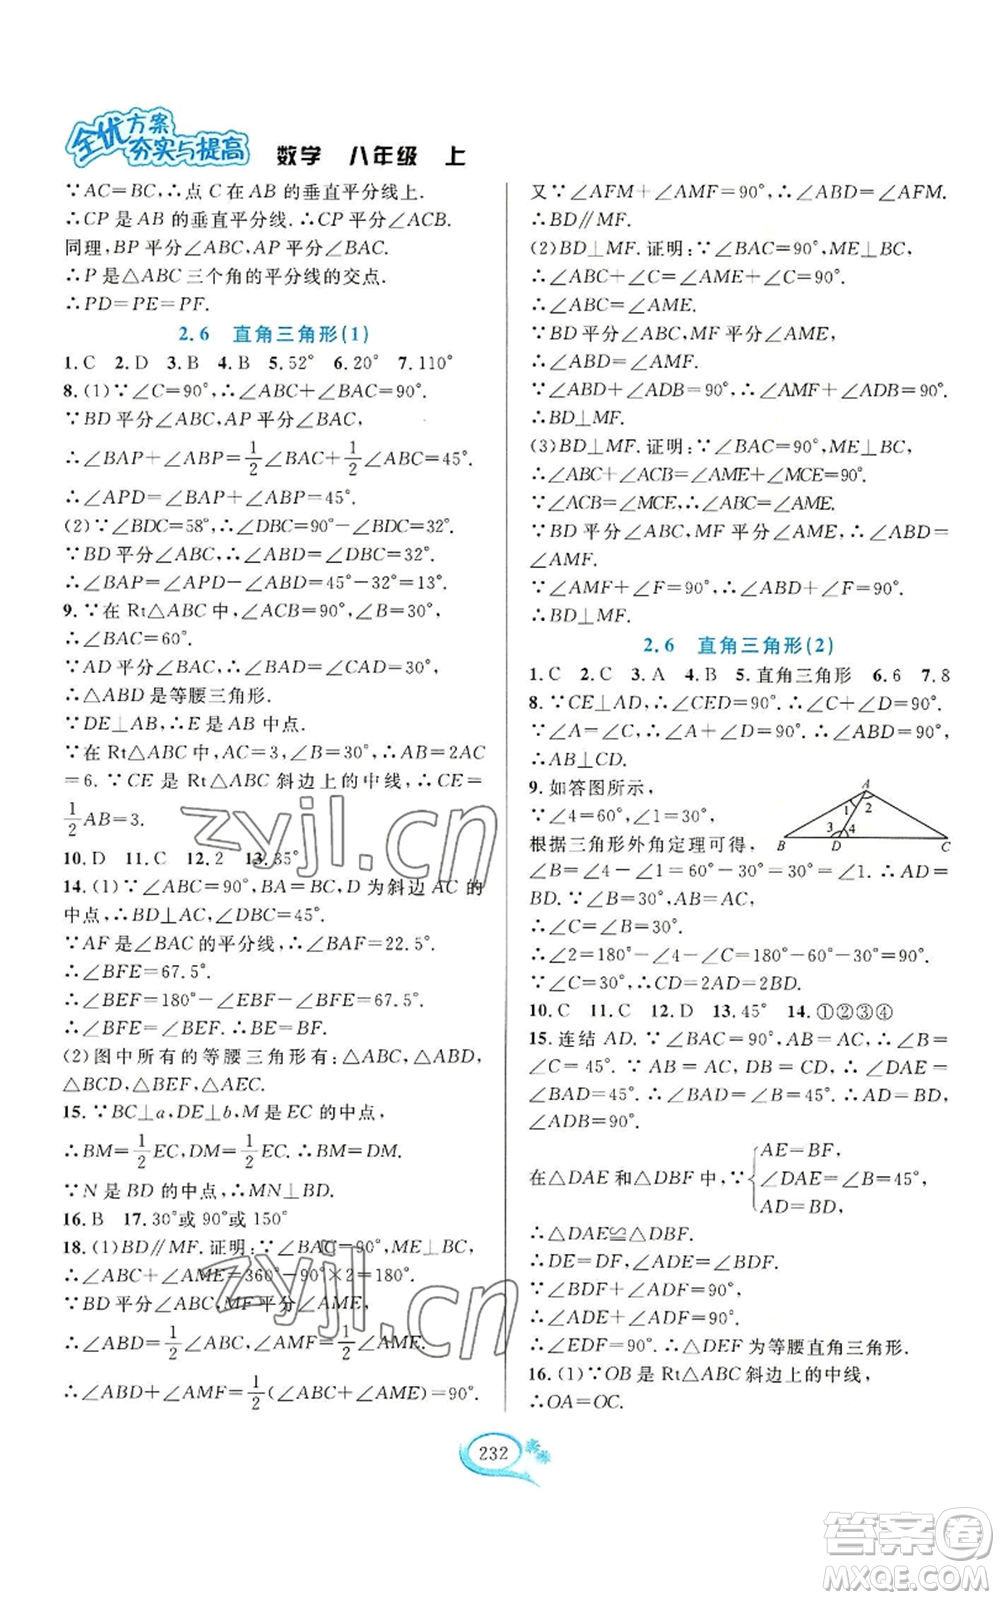 全优方案
夯实与提高 数学 八年级 上
∵AC=BC,∴点 C 在 AB 的垂直平分线上.
∴CP 是 AB 的垂直平分线.∴CP 平分∠ACB.
同理,BP 平分∠ABC,AP 平分∠BAC.
∴P 是△ABC 三个角的平分线的交点.
∴PD=PE=PF.
2.6 直角三角形(1)
1.C 2.D 3.B 4.B 5.52° 6.20° 7.110°
8.(1)∵∠C=90°,∴∠ABC+∠BAC=90°.
∵BD 平分∠ABC,AP 平分∠BAC,
∴∠BAP+∠ABP=1/2∠BAC+1/2∠ABC=45°.
∴∠APD=∠BAP+∠ABP=45°.
(2)∵∠BDC=58°,∴∠DBC=90°-∠BDC=32°.
∵BD 平分∠ABC,∴∠ABD=∠DBC=32°.
∴∠BAP=∠APD-∠ABD=45°-32°=13°.
9.∵在 Rt△ABC 中,∠ACB=90°,∠B=30°,
∴∠BAC=60°.
∵AD 平分∠BAC,∴∠BAD=∠CAD=30°.
∴△ABD 是等腰三角形.
∵DE⊥AB,∴E 是 AB 中点.
∵在 Rt△ABC 中,AC=3,∠B=30°,∴AB=2AC
=6.∵CE 是 Rt△ABC 斜边上的中线,∴CE=
1/2AB=3.
10.D 11.C 12.2 13.35°
14.(1)∵∠ABC=90°,BA=BC,D 为斜边 AC 的
中点,∴BD⊥AC,∠DBC=45°.
∵AF 是∠BAC 的平分线,∴∠BAF=22.5°.
∴∠BFE=67.5°.
∴∠BEF=180°-∠EBF-∠BFE=67.5°.
∴∠BFE=∠BEF.∴BE=BF.
(2)图中所有的等腰三角形有:△ABC,△ABD,
△BCD,△BEF,△AEC.
15.∵BC⊥a,DE⊥b,M 是 EC 的中点,
∴BM=1/2EC,DM=1/2EC.∴BM=DM.
∵N 是 BD 的中点,∴MN⊥BD.
16.B 17.30°或 90°或 150°
18.(1)BD∥MF.证明:∵∠BAC=90°,ME⊥BC,
∴∠ABC+∠AME=360°-90°×2=180°.
∵BD 平分∠ABC,MF 平分∠AME,
∴∠ABD=1/2∠ABC,∠AMF=1/2∠AME.
∴∠ABD+∠AMF=1/2(∠ABC+∠AME)=90°.
又∵∠AFM+∠AMF=90°,∴∠ABD=∠AFM.
∴BD∥MF.
(2)BD⊥MF.证明:∵∠BAC=90°,ME⊥BC,
∴∠ABC+∠C=∠AME+∠C=90°.
∴∠ABC=∠AME.
∵BD 平分∠ABC,MF 平分∠AME,
∴∠ABD=∠AMF.
∵∠ABD+∠ADB=90°,∴∠AMF+∠ADB=90°.
∴BD⊥MF.
(3)BD⊥MF.证明:∵∠BAC=90°,ME⊥BC,
∴∠ABC+∠ACB=∠AME+∠MCE=90°.
∵∠ACB=∠MCE,∴∠ABC=∠AME.
∵BD 平分∠ABC,MF 平分∠AME,∴∠ABD=
∠AMF.
∵∠AMF+∠F=90°,∴∠ABD+∠F=90°.
∴BD⊥MF.
2.6 直角三角形(2)
1.C 2.C 3.A 4.B 5.直角三角形 6.6 7.8
8.∵CE⊥AD,∴∠CED=90°.∴∠C+∠D=90°.
∵∠A=∠C,∴∠A+∠D=90°.
∴AB⊥CD.
9.如答图所示,
∵∠4=60°,∠1=30°,
根据三角形外角定理可得,
∠B=∠4-∠1=60°-30°=30°=∠1.∴AD=
BD.∵∠C=∠B=30°.
∴∠C=∠B=30°.
∴∠2=180°-∠4-∠C=180°-60°-30°=90°.
∴CD=2AD=2BD.
A
1
2
3
4
B D C
10.C 11.C 12.D 13.45° 14.①②③④
15.连结 AD.∵∠BAC=90°,AB=AC,∴∠B=
∠C=45°.∵AB=AC,DB=CD,∴∠DAE=
∠BAD=45°.∴∠BAD=∠B=45°.∴AD=BD,
∠ADB=90°.
在△DAE 和△DBF 中,∵{AE=BF,
∠DAE=∠B=45°,
AD=BD,
∴△DAE≌△DBF.
∴DE=DF,∠ADE=∠BDF.
∵∠BDF+∠ADF=90°,
∴∠ADE+∠ADF=90°.
∴∠EDF=90°.∴△DEF 为等腰直角三角形.
16.(1)∵OB 是 Rt△ABC 斜边上的中线,
∴OA=OC.
232
zyjl.cn
zyjl.cn
答案圈
MXQE.COM